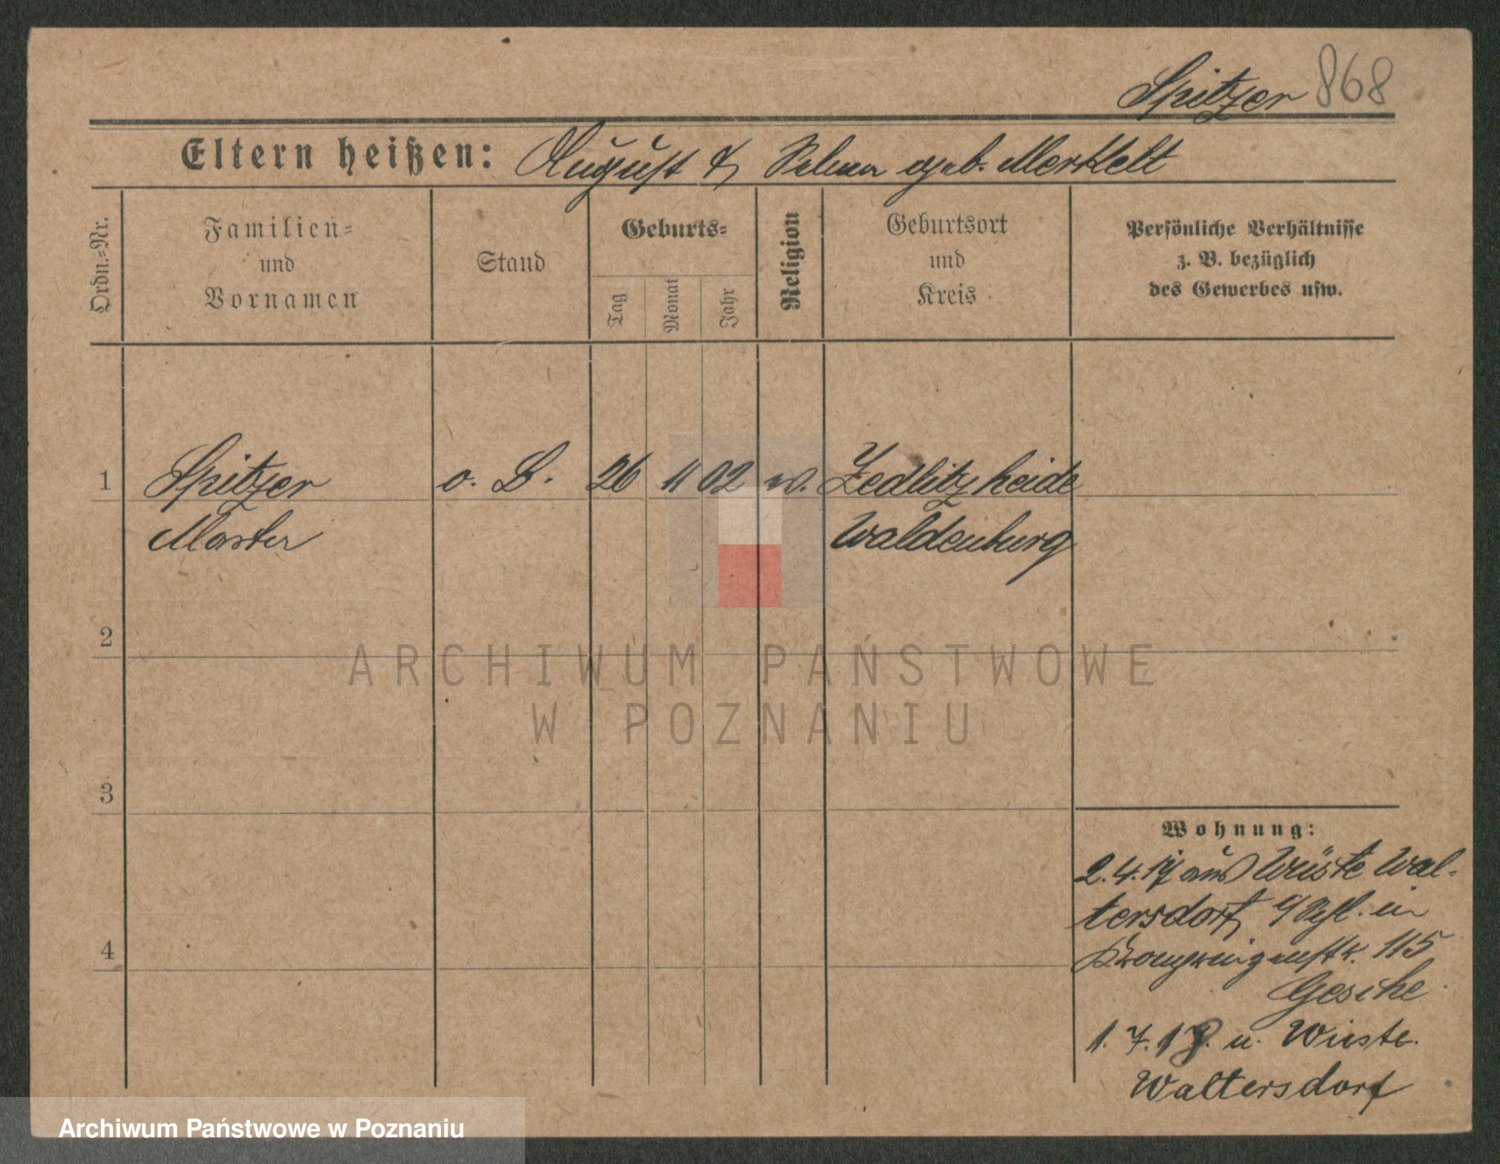 Spitzer 868
Eltern heißen: August & Selma geb. Merkelt
Ordn.-Nr.
Familien-
und
Vornamen
Stand
Geburts-
Tag
Monat
Jahr
Religion
Geburtsort
und
Kreis
Persönliche Verhältnisse
z. B. bezüglich
des Gewerbes usw.
1 Spitzer o. B. 26 11 02 Zedlitzheide
Waldenburg
2
ARCHIWUM PAŃSTWOWE
W POZNANIU
3
Wohnung:
2.4.17 aus Wüste Wal-
tersdorf in
4
Kronprinzenstr. 115
Gesche
1.7.18. n. Wüste.
Waltersdorf
Archiwum Państwowe w Poznaniu